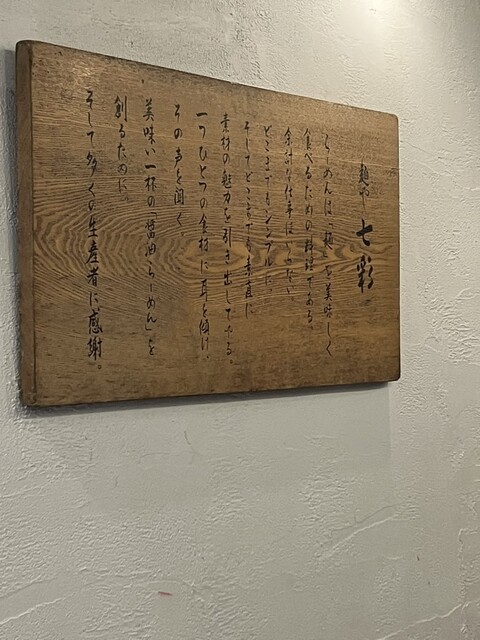 麺や 七彩
らーめんは「麺」を美味しく
食べるための料理である。
余計な仕事はしない
どこまでもシンプルに
そしてどこまでも素直に
素材の魅力を引き出してみる。
一つひとつの食材に耳を傾け、
その声を聞く。
美味い一杯の「醤油らーめん」を
創るために。
そして多くの生産者に感謝。